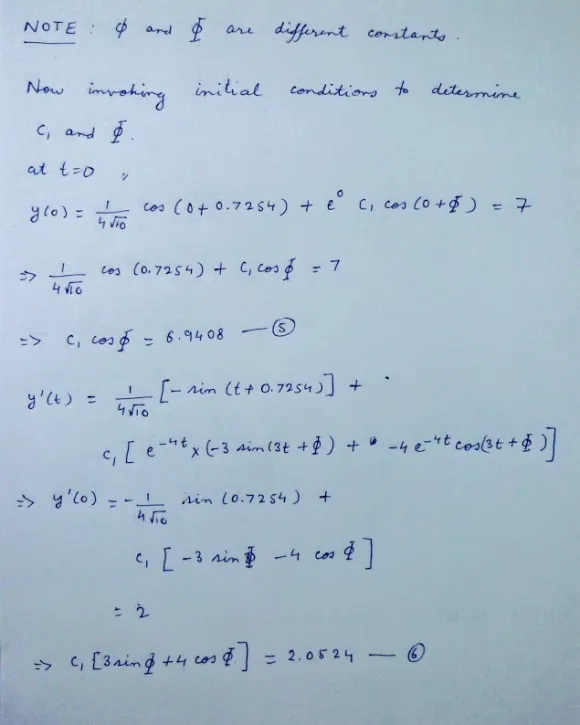 NOTE : ϕ and Φ are different constants.
Now invoking initial conditions to determine
C₁ and Φ.
at t=0 ,
y(0) = 1/(4√10) cos (0 + 0.7254) + e⁰ C₁ cos (0 + Φ) = 7
=> 1/(4√10) cos (0.7254) + C₁ cos Φ = 7
=> C₁ cos Φ = 6.9408 — ⑤
y'(t) = 1/(4√10) [- sin (t + 0.7254)] +
C₁ [ e^(-4t) x (-3 sin(3t + Φ) + -4 e^(-4t) cos(3t + Φ)]
=> y'(0) = - 1/(4√10) sin (0.7254) +
C₁ [ -3 sin Φ -4 cos Φ ]
= 2
=> C₁ [3 sin Φ + 4 cos Φ] = 2.0524 — ⑥